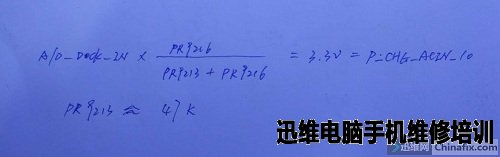 A/D_Dock_IN × PR9216 / PR9213 + PR9216 = 3.3V = P_CHG_ACIN_10
PR9213 ≈ 47K
迅维电脑手机维修培训
迅维网 Chinafix.com